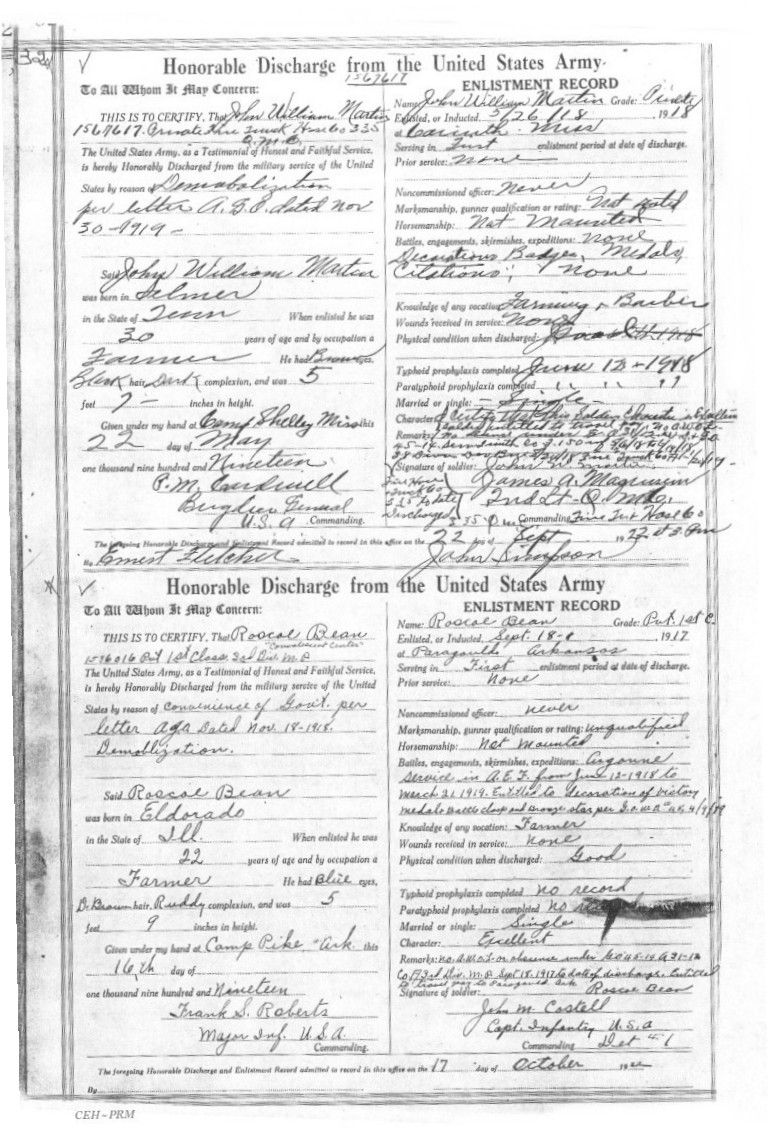 32
Honorable Discharge from the United States Army.
1567617
To All Whom It May Concern:
THIS IS TO CERTIFY, That John William Martin
1567617. Private Fire Truck Hose Co 335
Q.M.C.
The United States Army, as a Testimonial of Honest and Faithful Service,
is hereby Honorably Discharged from the military service of the United
States by reason of Demobalization
per letter A.G.O. dated Nov
30-1919-
Said John William Martin
was born in Selmer
in the State of Tenn When enlisted he was
30 years of age and by occupation a
Farmer He had Brown eyes,
Black hair, Dark complexion, and was 5
feet 7 - inches in height.
Given under my hand at Camp Shelby Miss this
22 day of May
one thousand nine hundred and Nineteen
Brigdier General
U.S.A Commanding.
ENLISTMENT RECORD
Name: John William Martin Grade: Private
Enlisted, or Inducted 5/26/18, 1918
at Corinth Miss
Serving in First enlistment period at date of discharge.
Prior service: None
Noncommissioned officer: Never
Marksmanship, gunner qualification or rating: Not Rated
Horsemanship: Not Mounted
Battles, engagements, skirmishes, expeditions: none
Decorations Badges, Medals,
Citations; None
Knowledge of any vocation: Farming & Barber
Wounds received in service: None
Physical condition when discharged: Good
Typhoid prophylaxis completed June 12-1918
Paratyphoid prophylaxis completed " " "
Married or single: - Single -
Character:
Remarks:
Signature of soldier: John W. Martin
James A.
2nd Lt. Q.M.C.
Commanding Fire Trk Hose Co
335
The foregoing Honorable Discharge and Enlistment Record admitted to record in this office on the 22 day of Sept 1922 at 3. Pm
By Ernest Fletcher John Simpson
Honorable Discharge from the United States Army
To All Whom It May Concern:
THIS IS TO CERTIFY, That Roscoe Bean
"Convalescent Center"
Pvt 1st Class. 3rd Div. M.P.
The United States Army, as a Testimonial of Honest and Faithful Service,
is hereby Honorably Discharged from the military service of the United
States by reason of convenience of Govt. per
letter AGA Dated Nov. 18-1918.
Demoblization.
Said Roscoe Bean
was born in Eldorado
in the State of Ill. When enlisted he was
22 years of age and by occupation a
Farmer He had Blue eyes,
D. Brown hair, Ruddy complexion, and was 5
feet 9 inches in height.
Given under my hand at Camp Pike Ark. this
16th day of
one thousand nine hundred and Nineteen
Frank S. Roberts
Major Inf. U.S.A.
Commanding.
ENLISTMENT RECORD
Name: Roscoe Bean Grade: Pvt. 1st C.
Enlisted, or Inducted, Sept. 18-8, 1917
at Paragould Arkansas
Serving in First enlistment period at date of discharge.
Prior service: None
Noncommissioned officer: never
Marksmanship, gunner qualification or rating: unqualified
Horsemanship: Not Mounted
Battles, engagements, skirmishes, expeditions: Argonne
service in A.E.F. from June 12-1918 to
March 21, 1919. Entitled to decoration of victory
medals Battle clasp and bronze star per G.O. W.D.
Knowledge of any vocation: Farmer
Wounds received in service: None
Physical condition when discharged: Good
Typhoid prophylaxis completed no record
Paratyphoid prophylaxis completed no
Married or single: Single
Character: Excellent
Remarks: no A.W.O.L. or absence under G.O. 45-14 & 31-12
Co A 3rd Div. M.P. Sept 18.1917 to date of discharge. Entitled
to travel pay to Paragould Ark
Signature of soldier: Roscoe Bean
John M. Costell
Capt. Infantry U.S.A
Commanding Det #1
The foregoing Honorable Discharge and Enlistment Record admitted to record in this office on the 17 day of October 1922
By
CEH~PRM